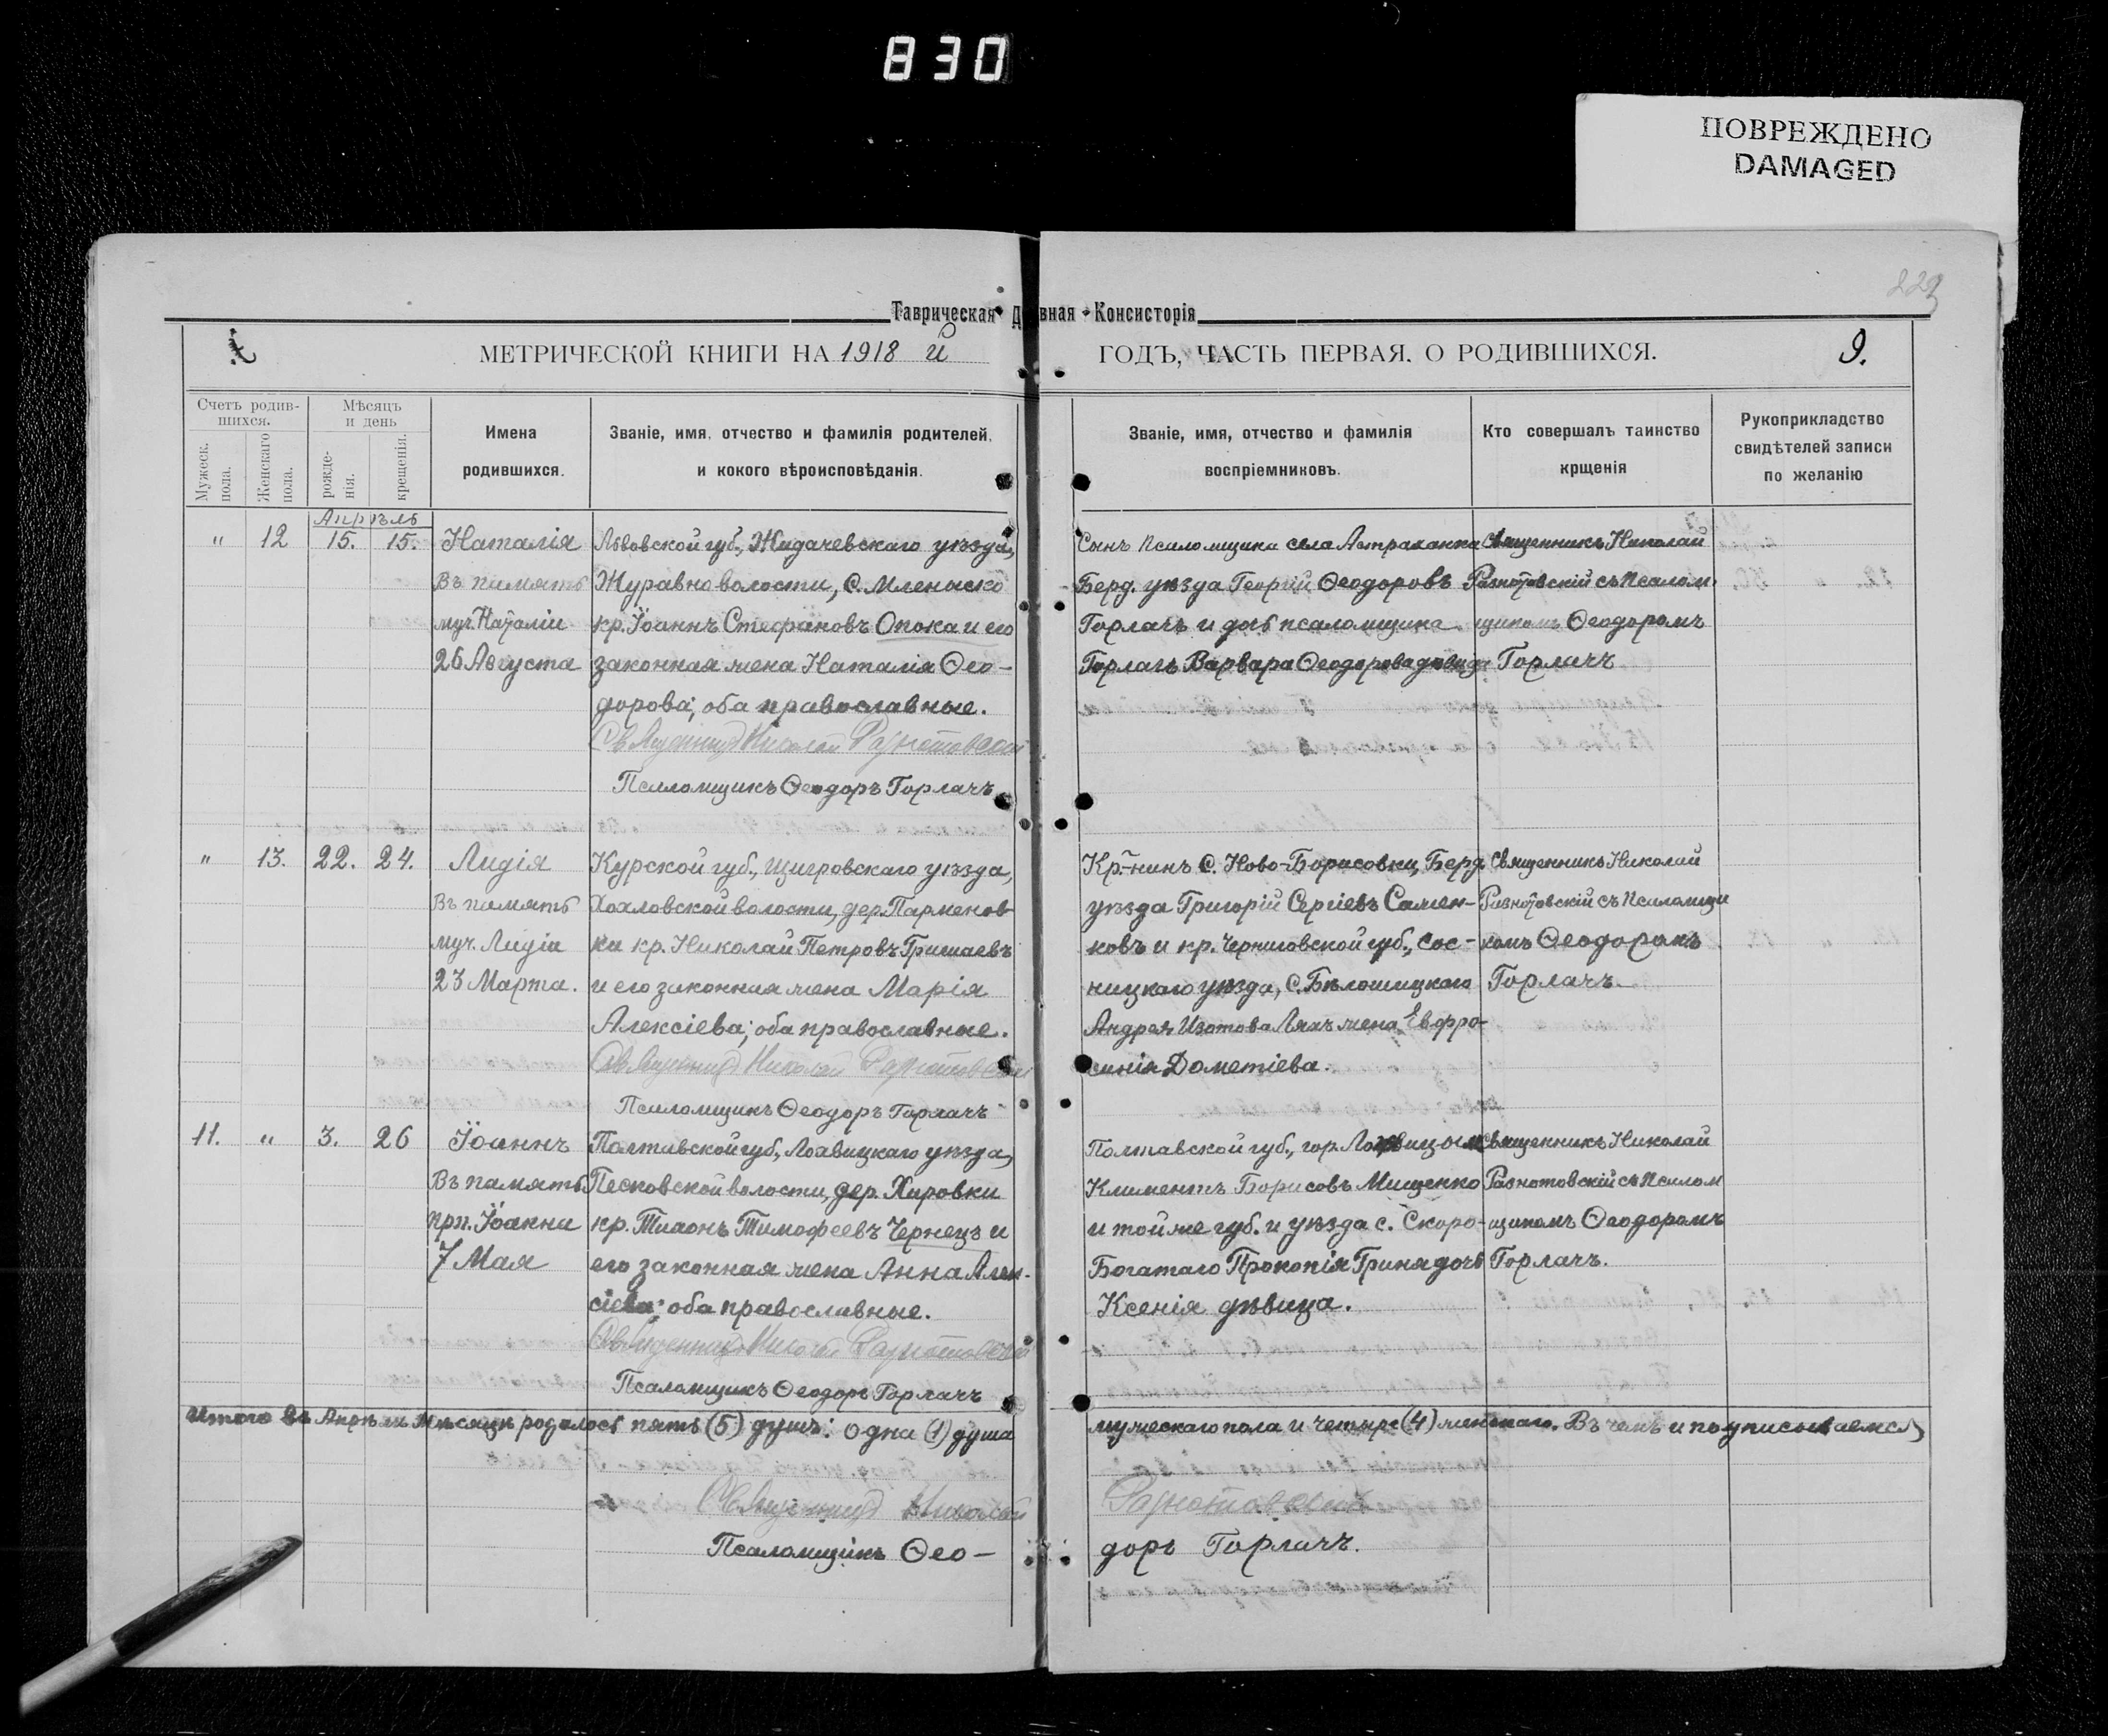 830
ПОВРЕЖДЕНО
DAMAGED
Таврическая Д вная Консисторія
МЕТРИЧЕСКОЙ КНИГИ НА 1918 й
ГОДЪ, ЧАСТЬ ПЕРВАЯ. О РОДИВШИХСЯ.
9.
Счетъ родив-
шихся.
Мужеск.
пола.
Женскаго
пола.
Мѣсяцъ
и день
рожде-
нія.
крещенія.
Имена
родившихся.
Званіе, имя, отчество и фамилія родителей,
и кокого вѣроисповѣданія.
Званіе, имя, отчество и фамилія
воспріемниковъ.
Кто совершалъ таинство
крщенія
Рукоприкладство
свидѣтелей записи
по желанію
Апрѣль
" 12 15. 15.
Наталія
Въ память
муч. Наталіи
26 Августа
Львовской губ., Жидачевскаго уѣзда,
Журавно волости, С.
кр. Іоаннъ Стефановъ Опока и его
законная жена Наталія Ѳео-
дорова; оба православные.
Священникъ Николай Разнотовскій
Псаломщикъ Ѳеодоръ Горлачъ
Сынъ псаломщика села Астраханка
Берд. уѣзда Георгій Ѳеодоровъ
Горлачъ и дочь псаломщика
Горлачъ Варвара Ѳеодорова дѣвица
Священникъ Николай
Разнотовскій съ псалом-
щикомъ Ѳеодоромъ
Горлачъ
" 13. 22. 24.
Лидія
Въ память
муч. Лидіи
23 Марта.
Курской губ., Щигровскаго уѣзда,
Хохловской волости, дер. Парменов-
ки кр. Николай Петровъ Гришаевъ
и его законная жена Марія
Алексіева; оба православные.
Священникъ Николай Разнотовскій
Псаломщикъ Ѳеодоръ Горлачъ
Кр-нинъ С. Ново-Борисовки, Берд.
уѣзда Григорій Сергіевъ Самен-
ковъ и кр. Черниговской губ., Сос-
ницкаго уѣзда, С. Бѣлошицкаго
Андрея Изотова Лях жена Евфро-
синія Дометіева.
Священникъ Николай
Разнотовскій съ псаломщи
комъ Ѳеодоромъ
Горлачъ.
11. " 3. 26
Іоаннъ
Въ память
прп. Іоанна
7 Мая
Полтавской губ., Лохвицкаго уѣзда,
Песковской волости, дер. Хировки
кр. Тихонъ Тимофеевъ Чернецъ и
его законная жена Анна Алек-
сіева; оба православные.
Священникъ Николай Разнотовскій
Псаломщикъ Ѳеодоръ Горлачъ
Полтавской губ., гор. Лохвицы
Климентъ Борисовъ Мищенко
и той же губ. и уѣзда с. Скоро-
Богатаго Прокопія Гриня дочь
Ксенія дѣвица.
Священникъ Николай
Разнотовскій съ псалом
щикомъ Ѳеодоромъ
Горлачъ.
Итого въ Апрѣлѣ мѣсяцѣ родилось пять (5) душъ: одна (1) душа мужескаго пола и четыре (4) женскаго. Въ чемъ и подписываемся
Священникъ Николай Разнотовскій
Псаломщикъ Ѳео-доръ Горлачъ.